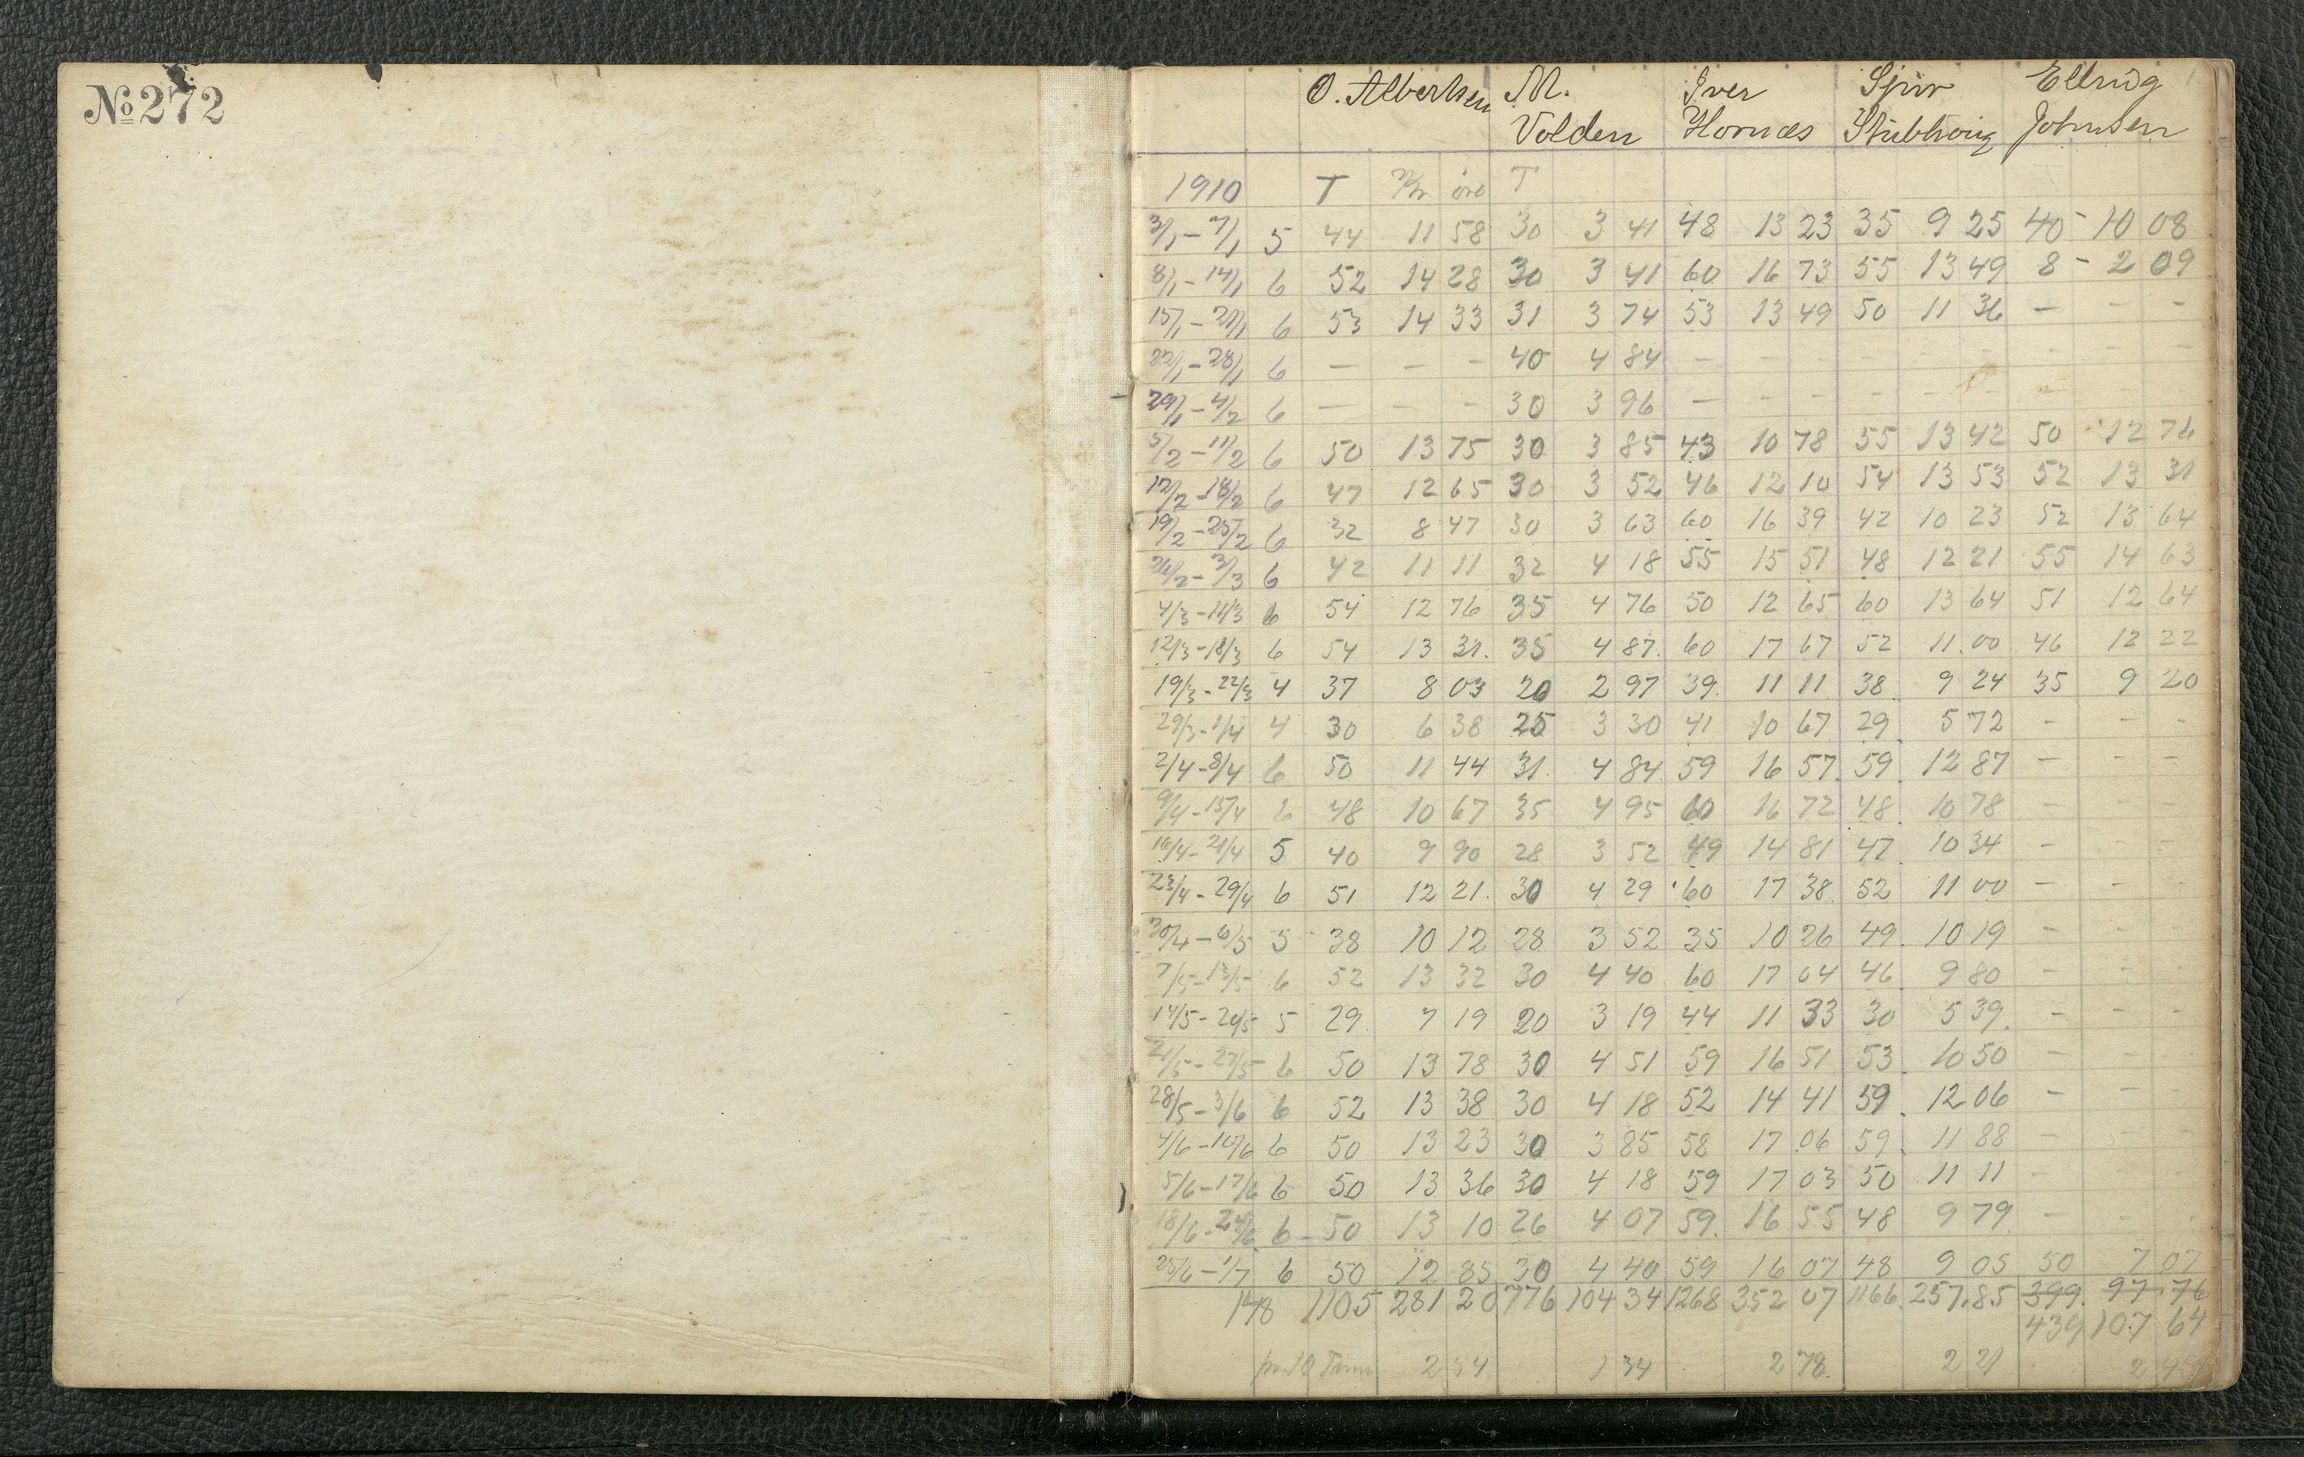 № 272
O. Albertsen M. Iver Sjur Elling
Volden Hornæs Stubhoug Johnsen
1910 T Kr øre T
3/1 - 7/1 5 44 11 58 30 3 41 48 13 23 35 9 25 40 - 10 08
8/1 - 14/1 6 52 14 28 30 3 41 60 16 73 55 13 49 8 - 2 09
15/1 - 21/1 6 53 14 33 31 3 74 53 13 49 50 11 36 - - -
22/1 - 28/1 6 - - - 40 4 84 - - - - - - - - -
29/1 - 4/2 6 - - - 30 3 96 - - - - - - - - -
5/2 - 11/2 6 50 13 75 30 3 85 43 10 78 55 13 42 50 12 76
12/2 - 18/2 6 47 12 65 30 3 52 46 12 10 54 13 53 52 13 31
19/2 - 25/2 6 32 8 47 30 3 63 60 16 39 42 10 23 52 13 64
26/2 - 3/3 6 42 11 11 32 4 18 55 15 51 48 12 21 55 14 63
4/3 - 11/3 6 54 12 76 35 4 76 50 12 65 60 13 64 51 12 64
12/3 - 18/3 6 54 13 31. 35 4 87. 60 17 67 52 11.00 46 12 22
19/3 - 22/3 4 37 8 03 20 2 97 39. 11 11 38. 9 24 35 9 20
29/3 - 1/4 4 30 6 38 25 3 30 41 10 67 29. 5 72 - - -
2/4 - 8/4 6 50 11 44 31. 4 84 59 16 57. 59. 12 87 - - -
9/4 - 15/4 6 48 10 67 35 4 95 60 16 72 48. 10 78 - - -
16/4 - 21/4 5 40 9 90 28 3 52 49 14 81 47 10 34 - - -
23/4 - 29/4 6 51 12 21. 30 4 29 60 17 38 52 11 00 - - -
30/4 - 6/5 5 38 10 12 28 3 52 35 10 26 49. 10 19 - - -
7/5 - 13/5 6 52 13 32 30 4 40 60 17 04 46 9 80 - - -
14/5 - 20/5 5 29 7 19 20 3 19 44 11 33 30 5 39. - - -
21/5 - 27/5 6 50 13 78 30 4 51 59 16 51 53. 10 50 - - -
28/5 - 3/6 6 52 13 38 30 4 18 52 14 41 59. 12 06 - - -
4/6 - 10/6 6 50 13 23 30 3 85 58 17 06 59. 11 88 - - -
5/6 - 17/6 6 50 13 36 30 4 18 59 17 03 50 11 11 - - -
18/6 - 24/6 6 50 13 10 26 4 07 59. 16 55 48 9 79. - - -
25/6 - 1/7 6 50 12 85 30 4 40 59 16 07 48 9 05 50 7 07
148 1105 281 20 776 104 34 1268 352 07 1166 257.85 399. 97.76
439 107 64
pr. 10 2 54 1 34 2 78 2 21 2